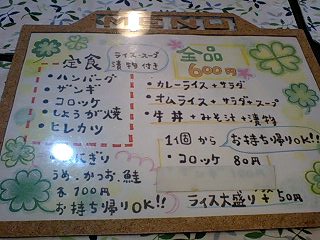 MENU
定食
ライス・スープ
漬物付き
・ハンバーグ
・ザンギ
・コロッケ
・しょうが焼
・ヒレカツ
おにぎり
うめ、かつお、鮭
各100円
お持ち帰りOK!!
全品
600円
・カレーライス+サラダ
・オムライス+サラダ+スープ
・牛丼+みそ汁+漬物
1個からお持ち帰りOK!!
・コロッケ 80円
ライス大盛り+50円